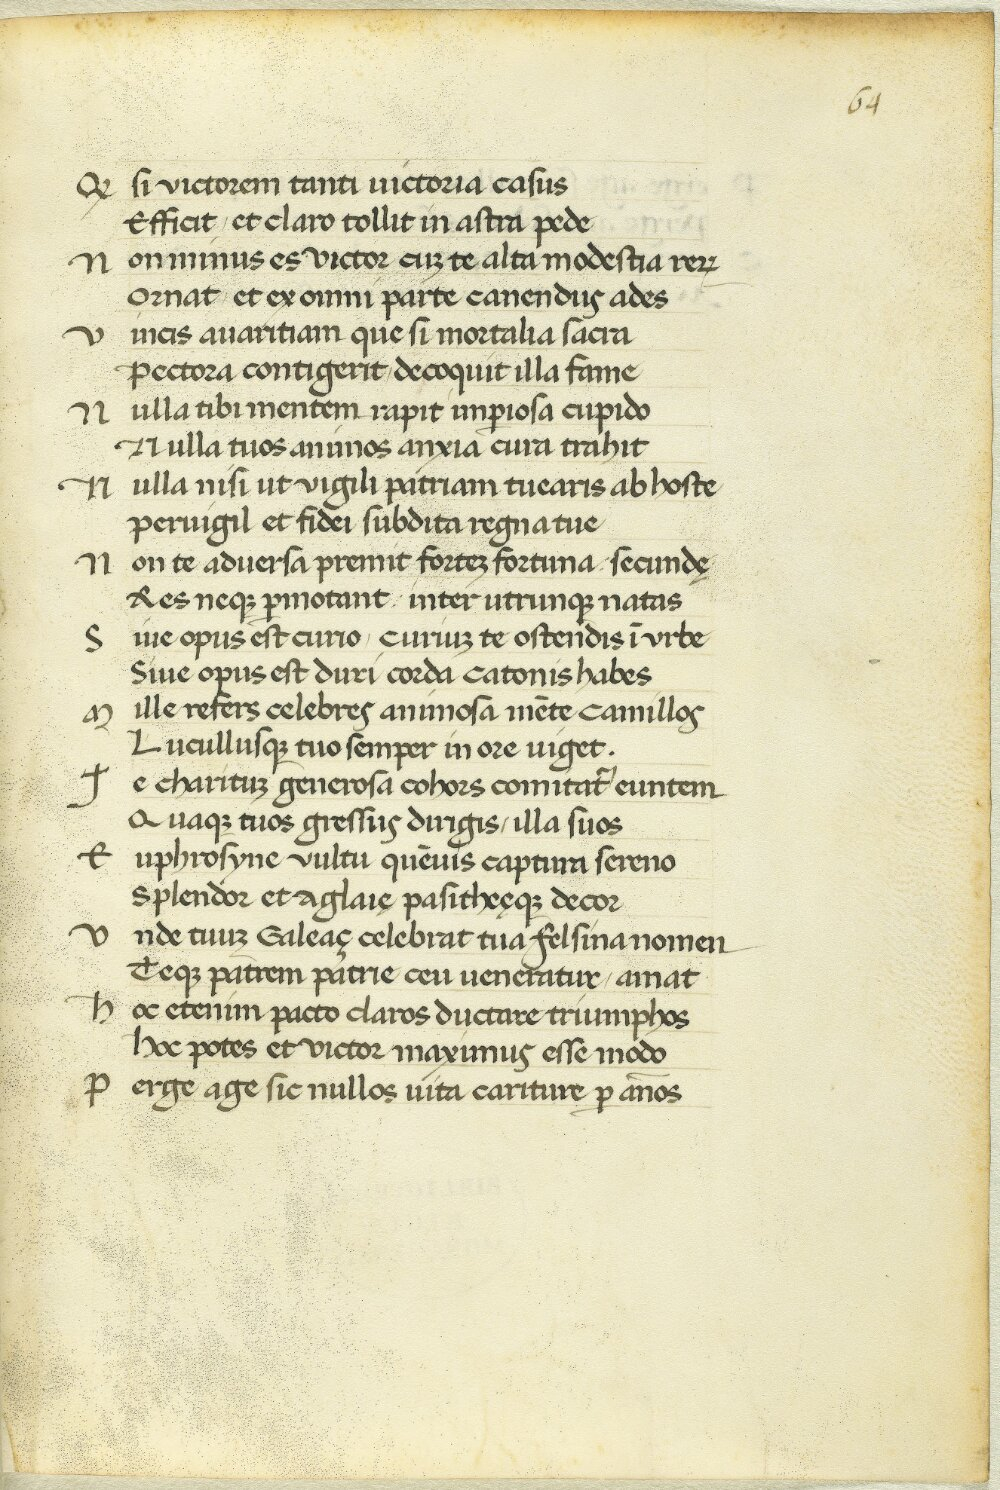 64
Qꝫ si victorem tanti uictoria casus
Efficit / et claro tollit in astra pede
N on minus es victor cuꝫ te alta modestia reꝝ
Ornat / et ex omni parte canendus ades
V incis auaritiam que si mortalia sacra
Pectora contigerit / decoquit illa fame
N ulla tibi mentem rapit imꝑiosa cupido
N ulla tuos animos anxia cura trahit
N ulla nisi ut vigili patriam tuearis ab hoste
Peruigil et fidei subdita regna tue
N on te aduersa premit forteꝫ fortuna / secundę
Res neqꝫ ꝑmotant / inter utrunqꝫ natas
S iue opus est curio / Curiuꝫ te ostendis ī vrbe
Siue opus est duri corda Catonis habes
M ille refers celebres animosa mēte Camillos
Lucullusqꝫ tuo semper in ore uiget .
T e charituꝫ generosa cohors comitat᷑ euntem
Quaqꝫ tuos gressus dirigis / illa suos
E uphrosyne vultu quēuis captura sereno
Splendor et Aglaię pasithęęqꝫ decor
V nde tuuꝫ Galeaç celebrat tua felsina nomen
Teqꝫ patrem patrie ceu ueneratur / amat
H oc etenim pacto claros ductare triumphos
Hoc potes et victor maximus esse modo
P erge age sic nullos uita cariture ꝑ an̄os